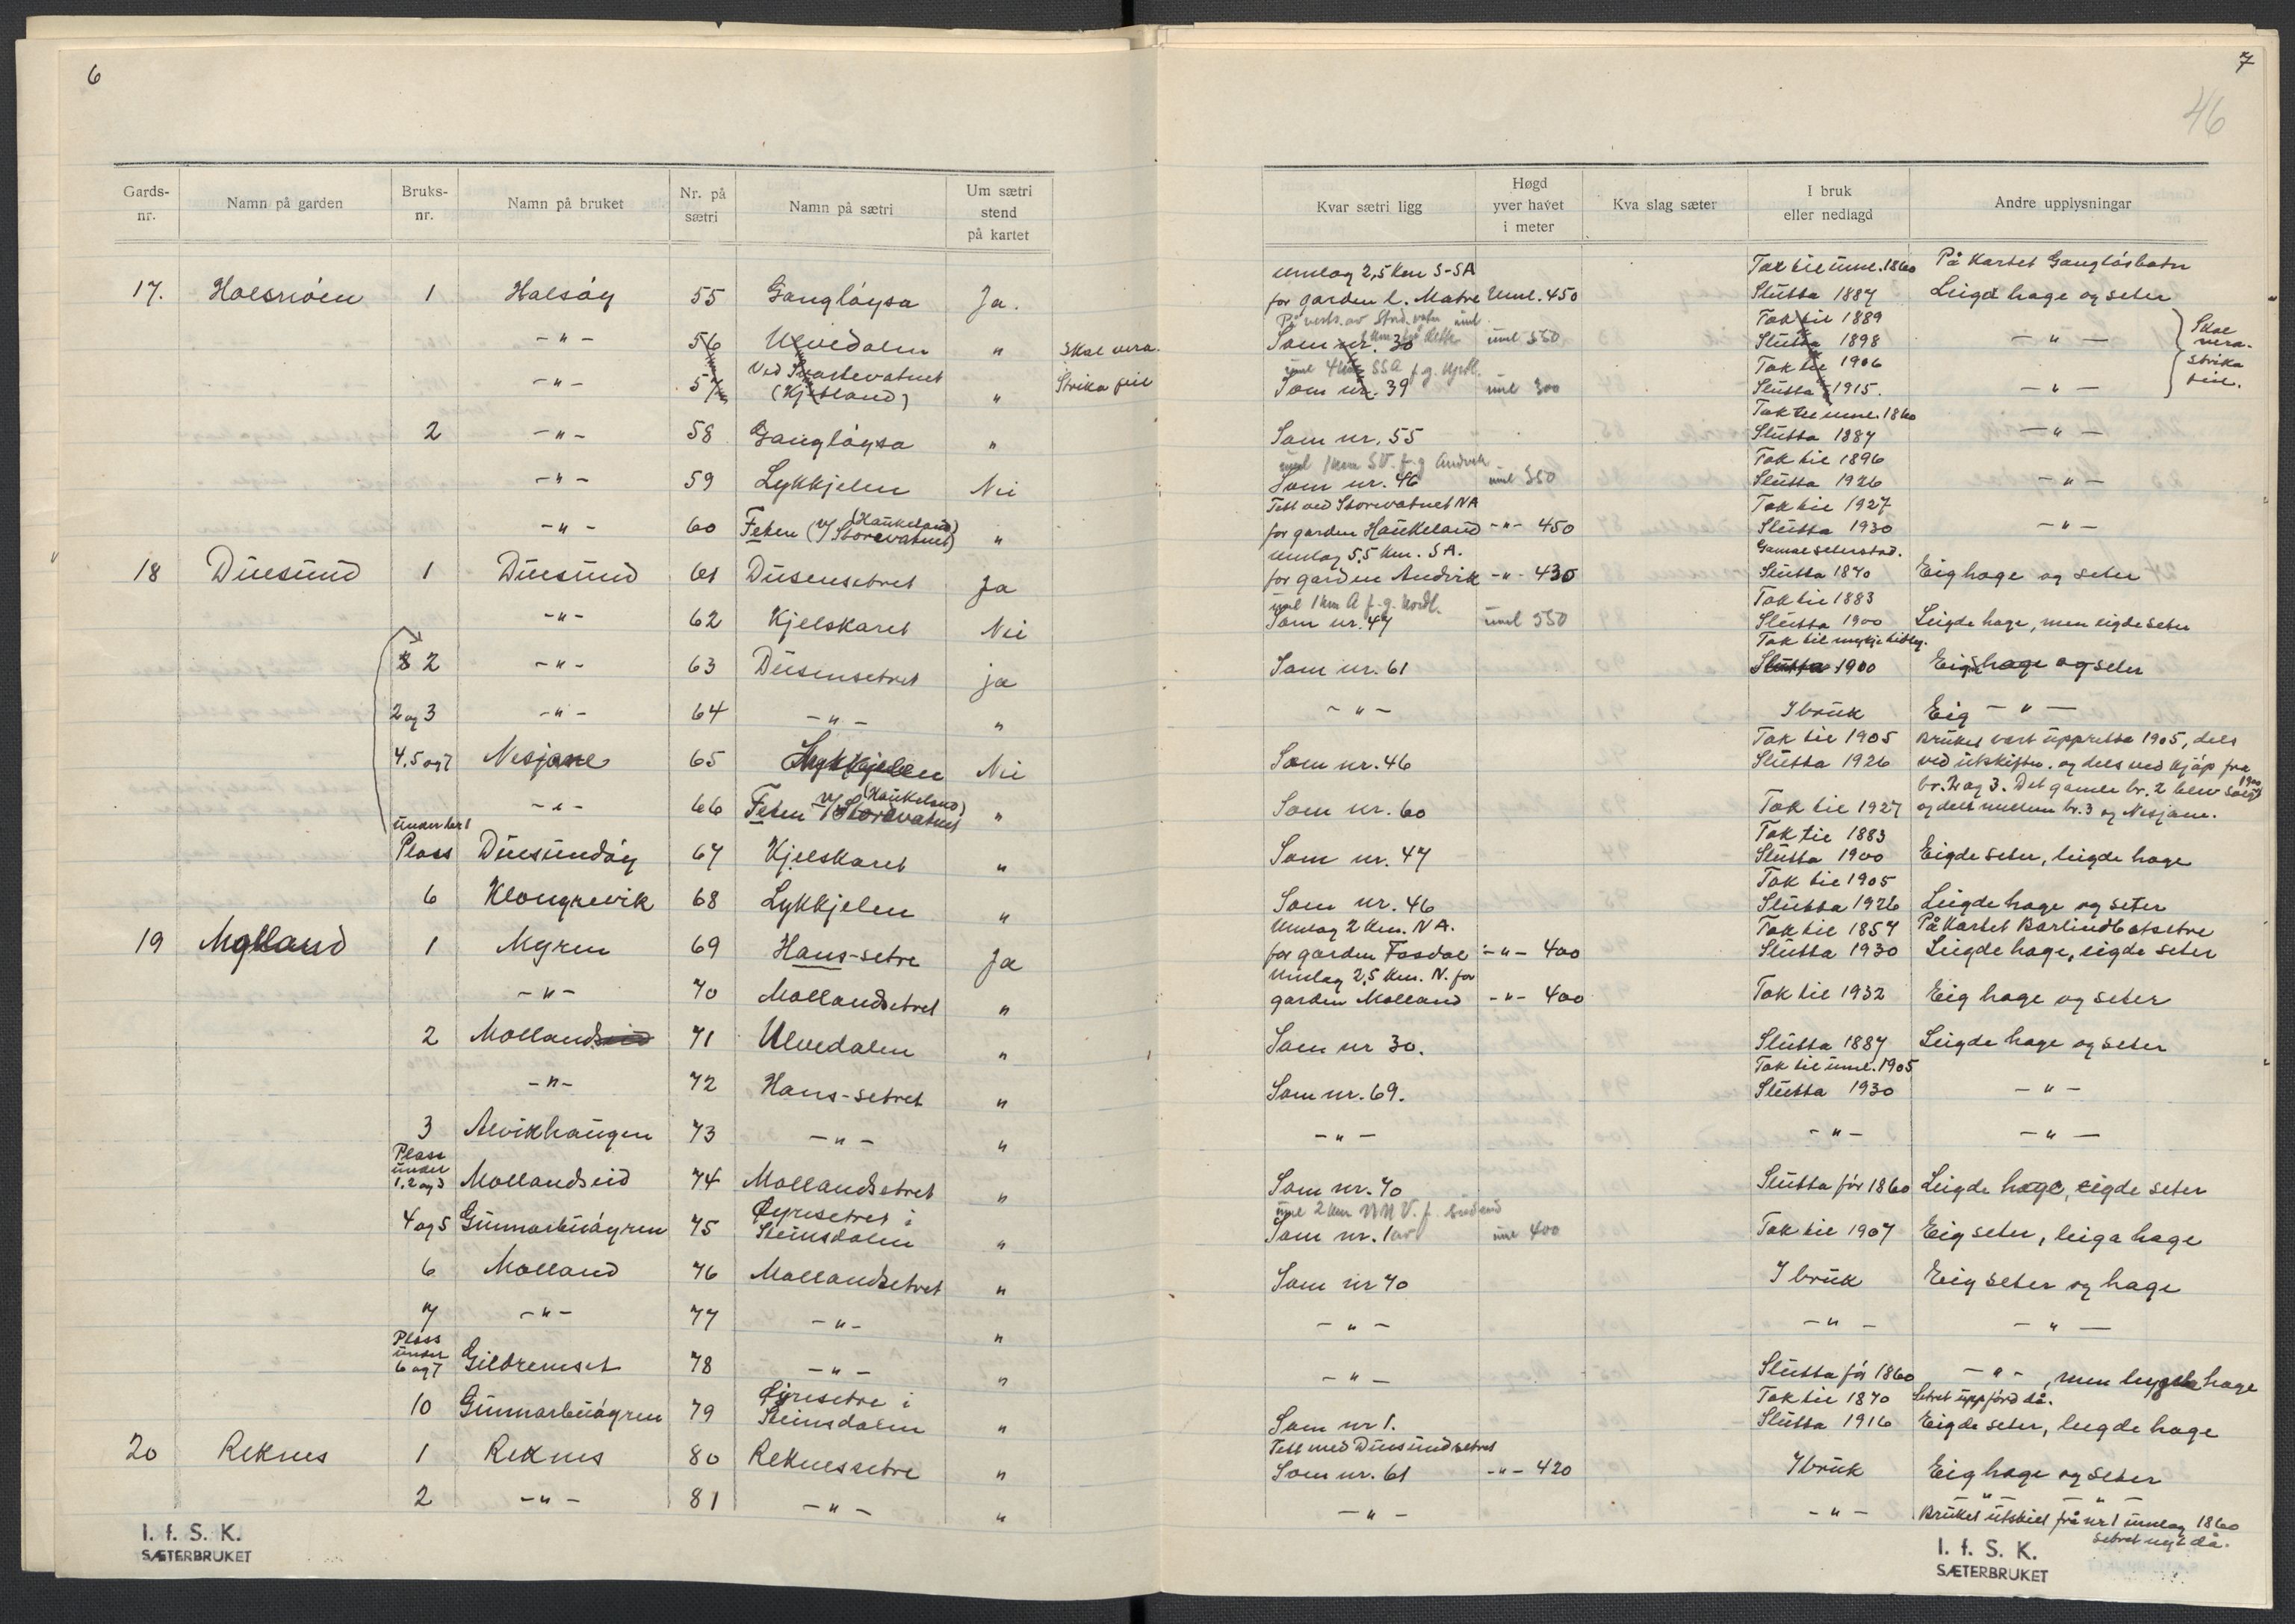 6
Gards-nr. Namn på garden Bruks-nr. Namn på bruket Nr. på sætri Namn på sætri Um sætri stend på kartet
17. 1 Halsøy 55 Gangløysa Ja.
-"- 56 Ulvedalen " Skal vera
-"- 57 Ved Svartevatnet (Kjetland) " Strika feil
2 -"- 58 Gangløysa "
-"- 59 Lykkjelen Nei
-"- 60 Feten (v/ Storevatnet) (Haukeland) "
18 Duesund 1 Duesund 61 Dusensetret Ja
-"- 62 Kjelskaret Nei
2 -"- 63 Dusensetret ja
2 og 3 -"- 64 -"- "
4,5 og 7 Nesjane 65 Lykkjelen Nei
-"- 66 Feten v/ Storevatnet (Haukeland) "
Plass under br 1 Duesundøy 67 Kjelskaret "
6 Klongrevik 68 Lykkjelen "
19 Molland 1 Myren 69 Hans-setre Ja
-"- 70 Mollandsetret "
2 Molland 71 Ulvedalen "
-"- 72 Hans-setret "
3 Alvikhaugen 73 -"- "
Plass under 1,2 og 3 Mollandseid 74 Mollandsetret "
4 og 5 Gunnarbuøyren 75 Øyresetret i Steinsdalen "
6 Molland 76 Mollandsetret "
7 -"- 77 -"- "
Plass under 6 og 7 Gildremset 78 -"- "
10 Gunnarbuøyren 79 Øyresetre i Steinsdalen "
20 Reknes 1 Reknes 80 Reknessetre "
2 -"- 81 -"- "
I. f. S. K.
SÆTERBRUKET
7
46
Kvar sætri ligg Høgd yver havet i meter Kva slag sæter I bruk eller nedlagd Andre upplysningar
Umlag 2,5 km S-SA Tok til uml. 1860 På kartet Gangløsbotn
for garden l. Matre Uml. 450 Slutta 1887 Leigde hage og seter
Tok til 1889
Som nr. 30 uml 550 Slutta 1898 -"- Skal vera
uml 4 km SSA f.g. Kjetl. Tok til 1906 strika
Som nr. 39 uml 300 Slutta 1915. -"- feil.
Tok til uml. 1860
Som nr. 55 Slutta 1887 -"-
uml 1 km SV. f.g. Andvik Tok til 1896
Som nr. 46 uml 350 Slutta 1926 -"-
Tett ved Storevatnet NA Tok til 1927
for garden Haukeland -"- 450 Slutta 1930 -"-
Umlag 5,5 km. SA. Gamal seterstad.
for garden Andvik -"- 430 Slutta 1870 Eig hage og seter
uml 1 km A f.g. Nordl. Tok til 1883
Som nr. 47 uml 550 Slutta 1900 Leigde hage, men eigde seter
Tok til mykje tidleg.
Som nr. 61 Slutta 1900 Eigde hage og seter
-"- I bruk Eig -"-
Tok til 1905 Bruket vart uppretta 1905, dels
Som nr. 46 Slutta 1926 ved utskiftn. og dels ved kjøp fra
br. 2 og 3. Det gamle br. 2 blev 1900
Som nr. 60 Tok til 1927 og delt millom br. 3 og Nesjane.
Tok til 1883
Som nr. 47 Slutta 1900 Eigde seter, leigde hage
Tok til 1905
Som nr. 46 Slutta 1926 Leigde hage og seter
Umlag 2 km. NA. Tok til 1857 På kartet
for garden Fosdal -"- 400 Slutta 1930 Leigde hage, eigde seter
Umlag 2,5 km. N. for
garden Molland -"- 400 Tok til 1932 Eig hage og seter
Som nr 30. Slutta 1887 Leigde hage og seter
Tok til uml. 1905
Som nr. 69. Slutta 1930 -"-
-"- -"- -"-
Som nr. 70 Slutta før 1860 Leigde hage, eigde seter
uml 2 km NNV. f.
Som nr. 1 uml 400 Tok til 1907 Eig seter, leiga hage
Som nr 70 I bruk Eig seter og hage
-"- -"- -"-
-"- Slutta før 1860 -"-, men leigde hage
Tok til 1870 Setret uppførd då.
Som nr 1. Slutta 1916 Eigde seter, leigde hage
Tett med Duesundsetret
Som nr. 61 -"- 420 I bruk Eig hage og seter
-"- -"- -"-
Bruket utskilt frå nr 1 umlag 1860
Setret nytt då.
I. f. S. K.
SÆTERBRUKET